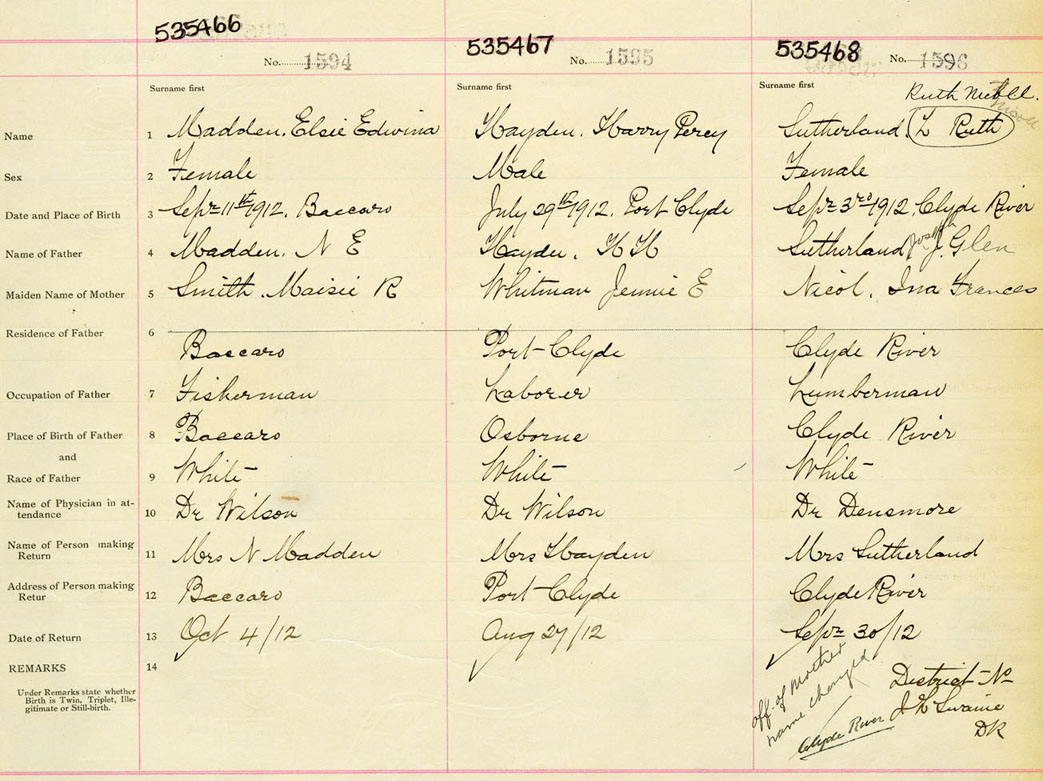 535466 535467 535468
No. 1594 No. 1595 No. 1596
Surname first Surname first Surname first
Ruth Nicoll.
Name 1 Madden, Elsie Edwina Hayden, Harry Percy Sutherland, L Ruth
Sex 2 Female Male Female
Date and Place of Birth 3 Sept 11th 1912, Baccaro July 29th 1912, Port Clyde Sept 3rd 1912, Clyde River
Name of Father 4 Madden, N E Hayden, H H Sutherland Joseph J. Glen
Maiden Name of Mother 5 Smith, Maisie R Whitman Jennie E Nicol, Ina Frances
Residence of Father 6 Baccaro Port-Clyde Clyde River
Occupation of Father 7 Fisherman Laborer Lumberman
Place of Birth of Father 8 Baccaro Osborne Clyde River
and
Race of Father 9 White White White
Name of Physician in at-
tendance 10 Dr Wilson Dr Wilson Dr Densmore
Name of Person making
Return 11 Mrs N Madden Mrs Hayden Mrs Sutherland
Address of Person making
Retur 12 Baccaro Port-Clyde Clyde River
Date of Return 13 Oct 4/12 Aug 27/12 Sept 30/12
REMARKS 14
Under Remarks state whether
Birth is Twin, Triplet, Ille-
gitimate or Still-birth.
aff. of Mother
name changed
Clyde River
District No
J H Swaine
DR